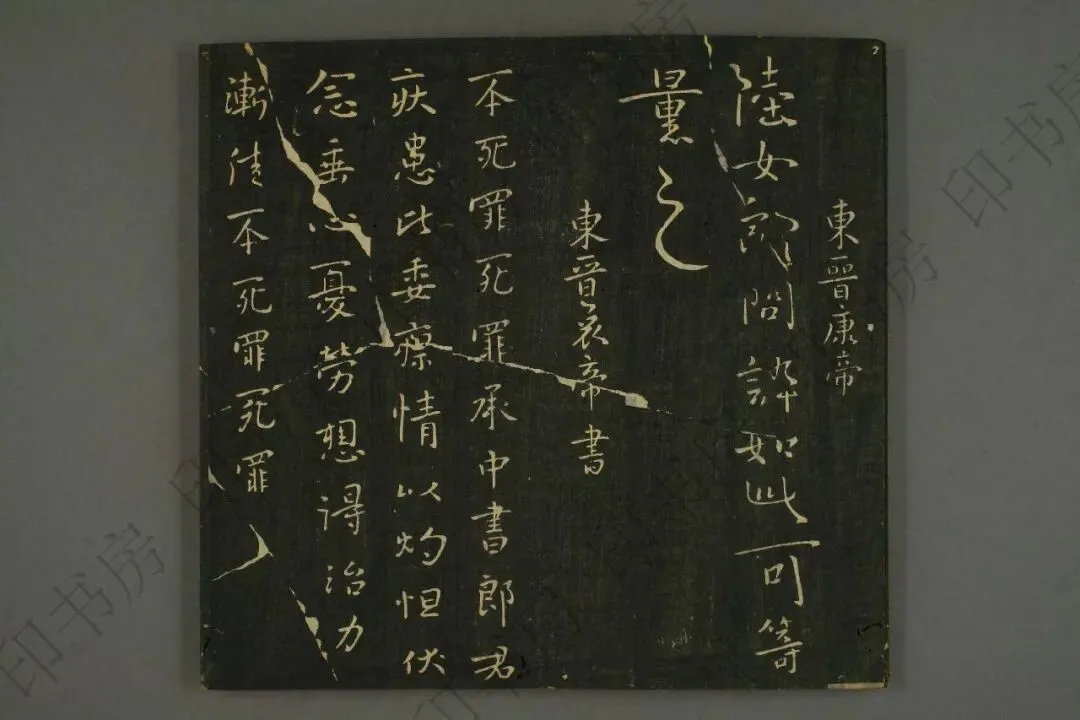 東晉康帝
陸女郎問訃如此可等
量之
東晉哀帝書
不死罪死罪承中書郎君
疾患比委瘵情以灼怛伏
念垂心憂勞想得治力
漸佳不死罪死罪
印书房